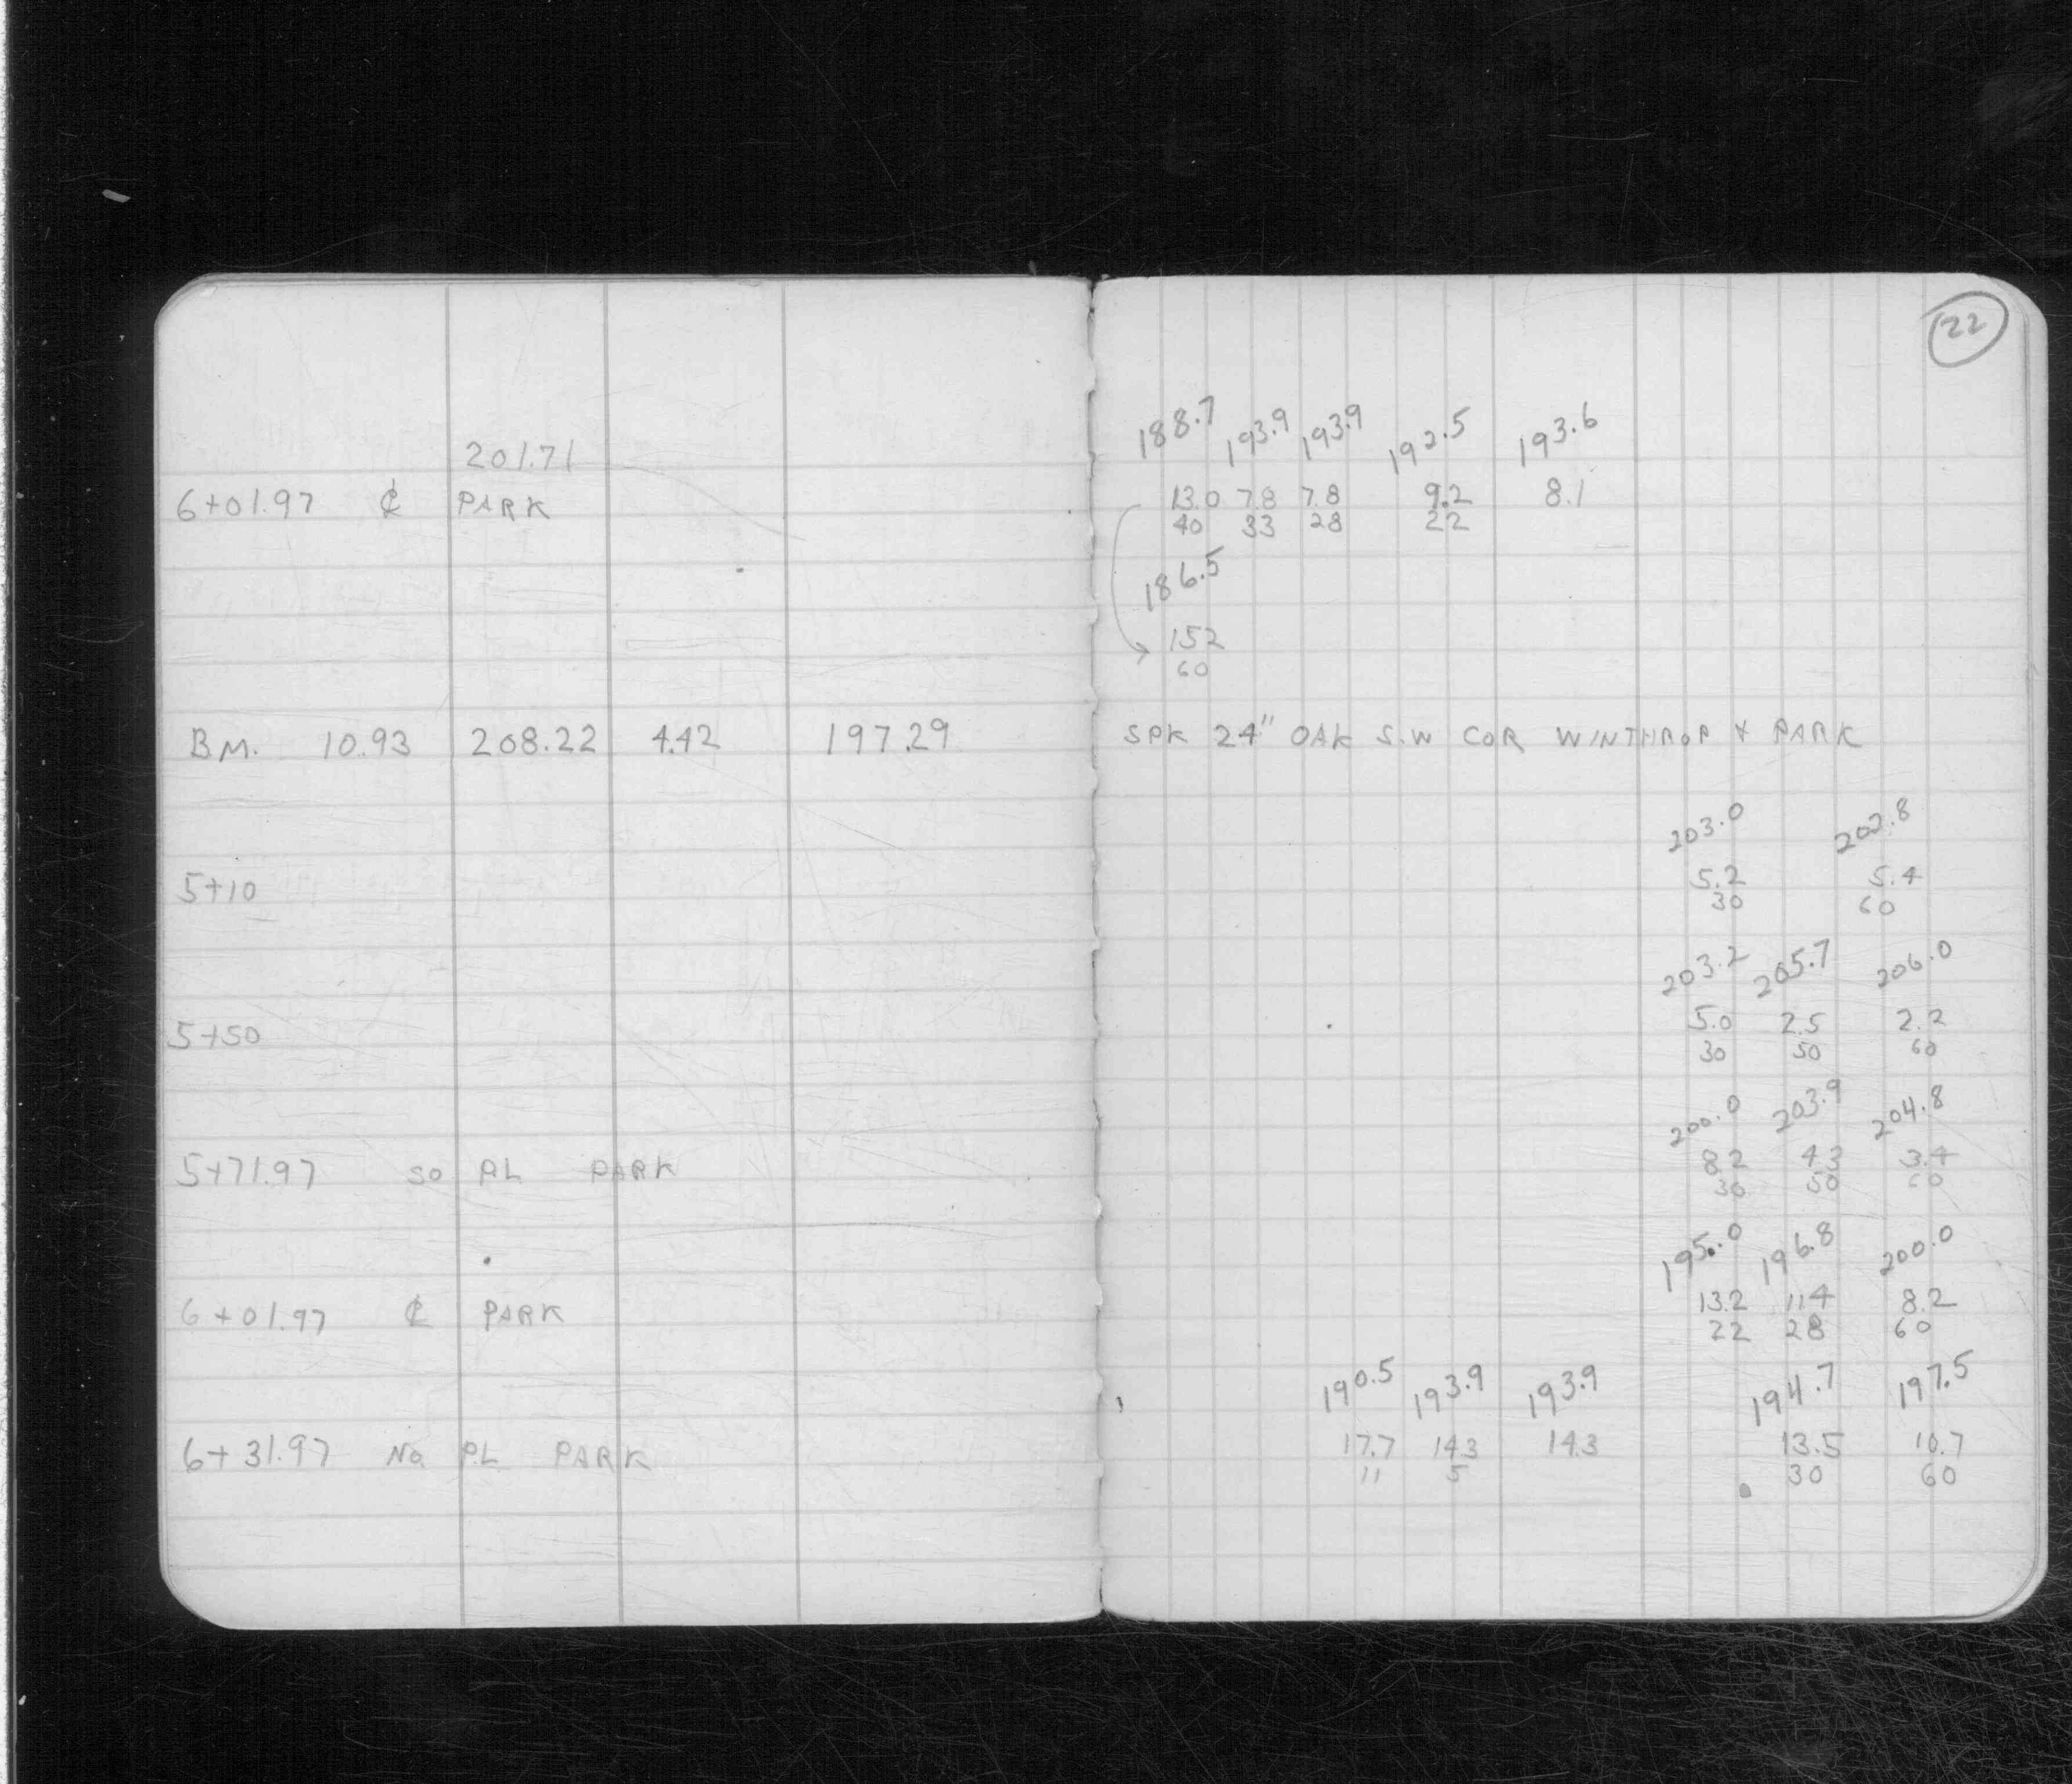 22
188.7 193.9 193.9 192.5 193.6
201.71
6+01.97 ⅊ PARK 13.0 7.8 7.8 9.2 8.1
40 33 28 22
186.5
152
60
B M. 10.93 208.22 4.42 197.29 SPK 24" OAK S.W COR WINTHROP & PARK
203.0 202.8
5+10 5.2 5.4
30 60
203.2 205.7 206.0
5+50 5.0 2.5 2.2
30 50 60
200.0 203.9 204.8
5+71.97 SO PL PARK 8.2 4.3 3.4
30 50 60
195.0 196.8 200.0
6+01.97 ⅊ PARK 13.2 11.4 8.2
22 28 60
190.5 193.9 193.9 194.7 197.5
6+31.97 No PL PARK 17.7 14.3 14.3 13.5 10.7
11 5 30 60